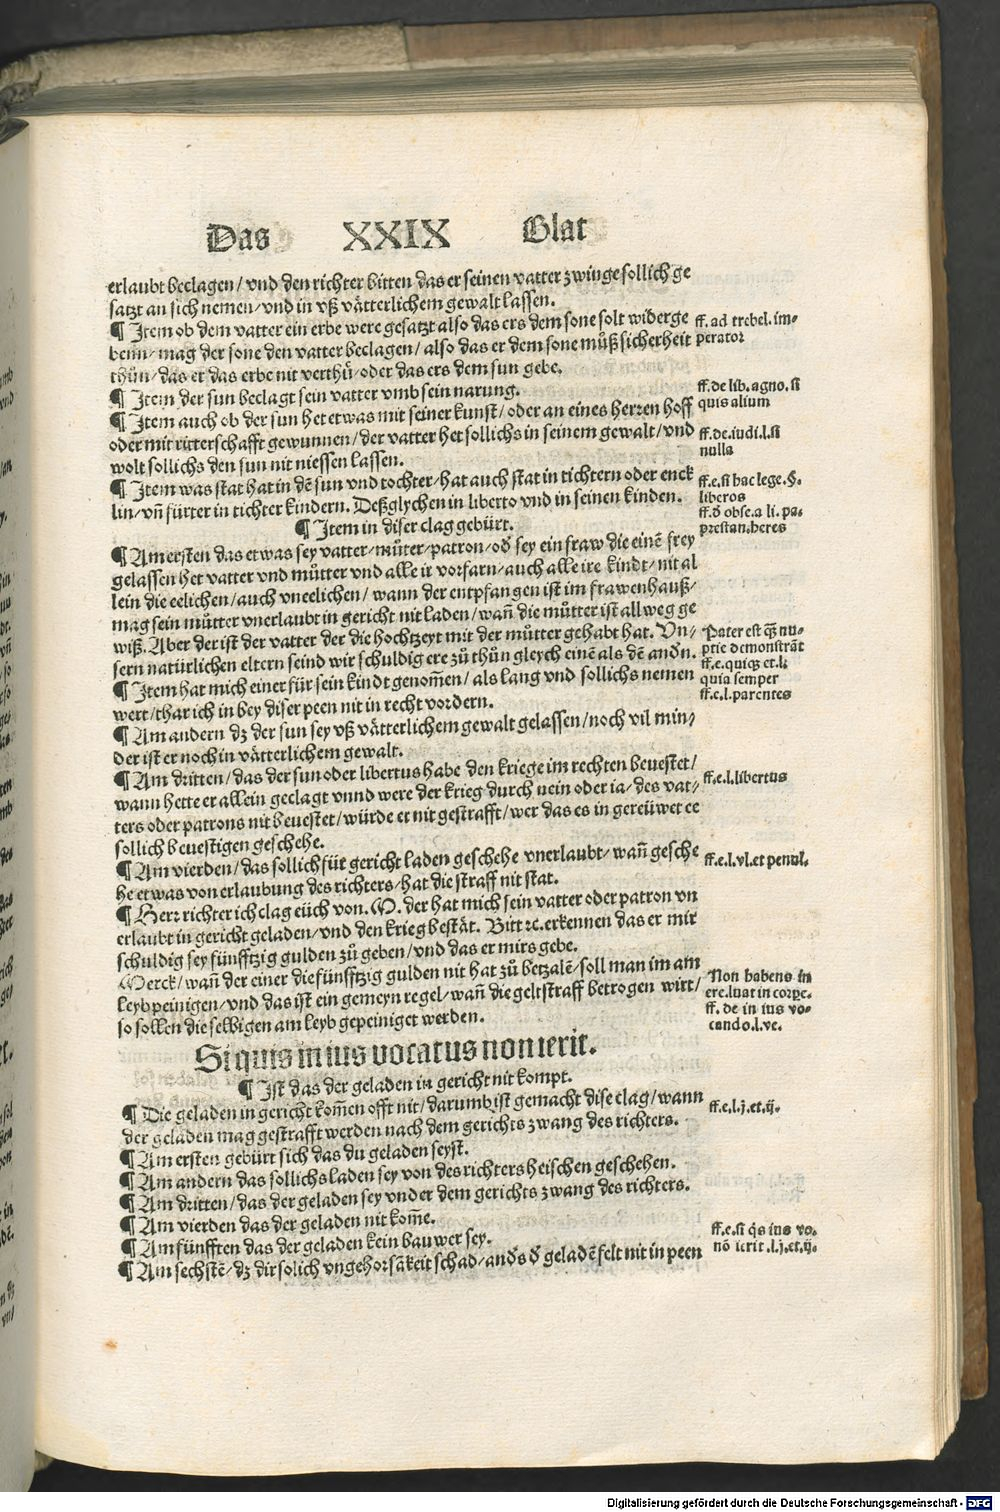 Das XXIX Blat
erlaubt beclagen / vnd den richter bitten das er seinen vatter zwinge sollich ge
satzt an sich nemen / vnd in vß vätterlichem gewalt lassen.
¶ Item ob dem vatter ein erbe were gesatzt also das ers dem sone solt widerge
benn / mag der sone den vatter beclagen / also das er dem sone müß sicherheit
thün / das er das erbe nit verthü / oder das ers dem sun gebe.
¶ Item der sun beclagt sein vatter vmb sein narung.
¶ Item auch ob der sun het etwas mit seiner kunst / oder an eines herren hoff
oder mit ritterschafft gewunnen / der vatter het sollichs in seinem gewalt / vnd
wolt sollichs den sun nit niessen lassen.
¶ Item was stat hat in dē sun vnd tochter / hat auch stat in tichtern oder enck
lin / vn̄ fürter in tichter kindern. Deßglychen in liberto vnd in seinen kinden.
¶ Item in diser clag gebürt.
¶ Am ersten das etwas sey vatter / můter / patron / od̄ sey ein fraw die einē frey
gelassen het vatter vnd můtter vnd alle ir vorfarn / auch alle ire kindt / nit al
lein die eelichen / auch vneelichen / wann der entpfangen ist im frawenhauß /
mag sein můtter vnerlaubt in gericht nit laden / wan̄ die můtter ist allweg ge
wiß. Aber der ist der vatter der die hochtzeyt mit der můtter gehabt hat. Vn /
sern natürlichen eltern seind wir schuldig ere zů thůn gleych einē als dē and̄n.
¶ Item hat mich einer für sein kindt genom̄en / als lang vnd sollichs nemen
wert / thar ich in bey diser peen nit in recht vordern.
¶ Am andern dz der sun sey vß vätterlichem gewalt gelassen / noch vil min /
der ist er noch in vätterlichem gewalt.
¶ Am dritten / das der sun oder libertus habe den kriege im rechten beuestet /
wann hette er allein geclagt vnnd were der krieg durch nein oder ia / des vat /
ters oder patrons nit beuestet / würde er nit gestrafft / wer das es in gereüwet ee
sollich beuestigen geschehe.
¶ Am vierden / das sollich für gericht laden geschehe vnerlaubt / wan̄ gesche
he etwas von erlaubung des richters / hat die straff nit stat.
¶ Herr richter ich clag eüch von. M. der hat mich sein vatter oder patron vn
erlaubt in gericht geladen / vnd den krieg bestät. Bitt ꝛc. erkennen das er mir
schuldig sey fünfftzig gulden zů geben / vnd das er mirs gebe.
Merck / wan̄ der einer die fünfftzig gulden nit hat zů betzalē / soll man im am
leyb peinigen / vnd das ist ein gemeyn regel / wan̄ die geltstraff betrogen wirt /
so sollen die selbigen am leyb gepeiniget werden.
Si quis in ius vocatus non ierit.
¶ Ist das der geladen in gericht nit kompt.
¶ Die geladen in gericht kom̄en offt nit / darumb ist gemacht dise clag / wann
der geladen mag gestrafft werden nach dem gerichts zwang des richters.
¶ Am ersten gebürt sich das du geladen seyst.
¶ Am andern das sollichs laden sey von des richters heischen geschehen.
¶ Am dritten / das der geladen sey vnder dem gerichts zwang des richters.
¶ Am vierden das der geladen nit kom̄e.
¶ Am fünfften das der geladen kein bauwer sey.
¶ Am sechstē / dz dir solich vngehorsākeit schad / and̄s d̄ geladē felt nit in peen
ff. ad trebel. im-
perator
ff. de lib. agno. si
quis alium
ff. de. iudi. l. si
nulla
ff. e. si hac lege. §.
liberos
ff. d̄ obse. a li. pa-
prestan. heres
Pater est qȝ nu-
ptie demonstrāt
ff. e. quiqȝ et. l.
quia semper
ff. e. l. parentes
ff. e. l. libertus
ff. e. l. vl. et penul.
Non habens in
ere. luat in corpe.
ff. de in ius vo-
cando. l. vc.
ff. e. l. j. et. ij.
ff. e. si q̄s ius vo.
nō ierit. l. j. et. ij.
Digitalisierung gefördert durch die Deutsche Forschungsgemeinschaft - DFG